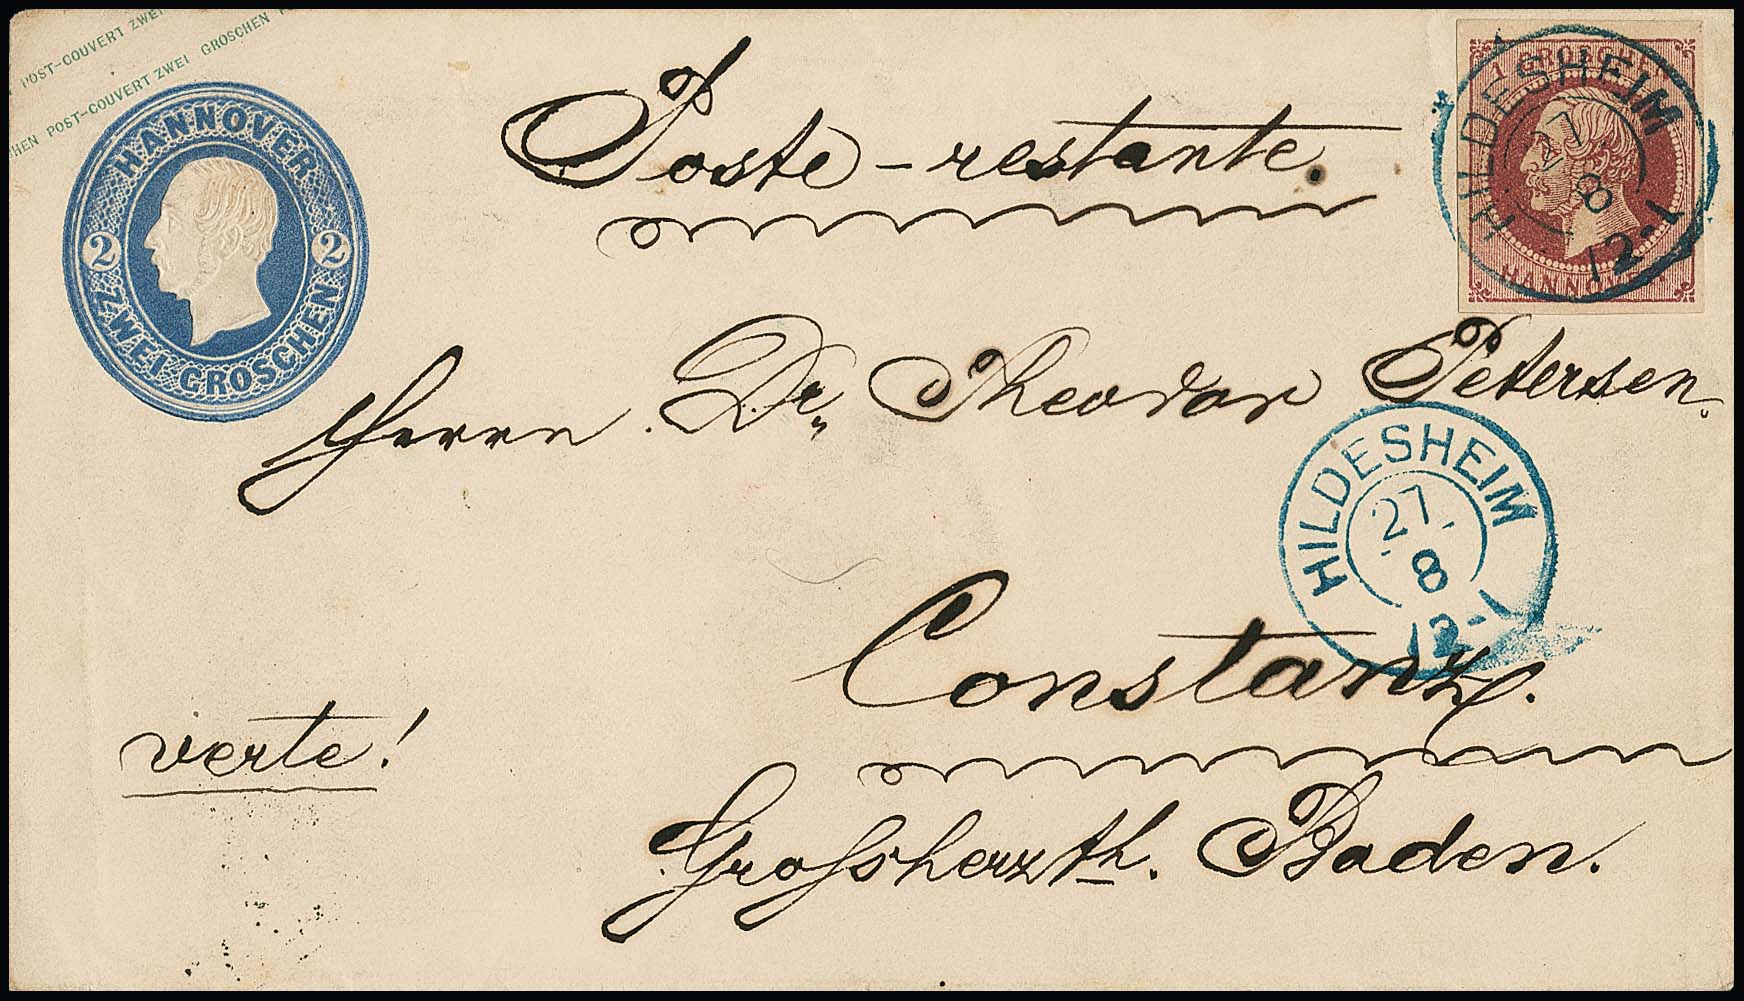 POST-COUVERT ZWEI
HEN POST-COUVERT ZWEI GROSCHEN
HANNOVER
2 2
ZWEI GROSCHEN
1 GROSCHEN
HANNOVER
HILDESHEIM
27
8
12-1
Poste-restante.
Herrn Dr. Theodor Petersen.
HILDESHEIM
27
8
12-1
Constanz.
verte!
Großherzth. Baden.